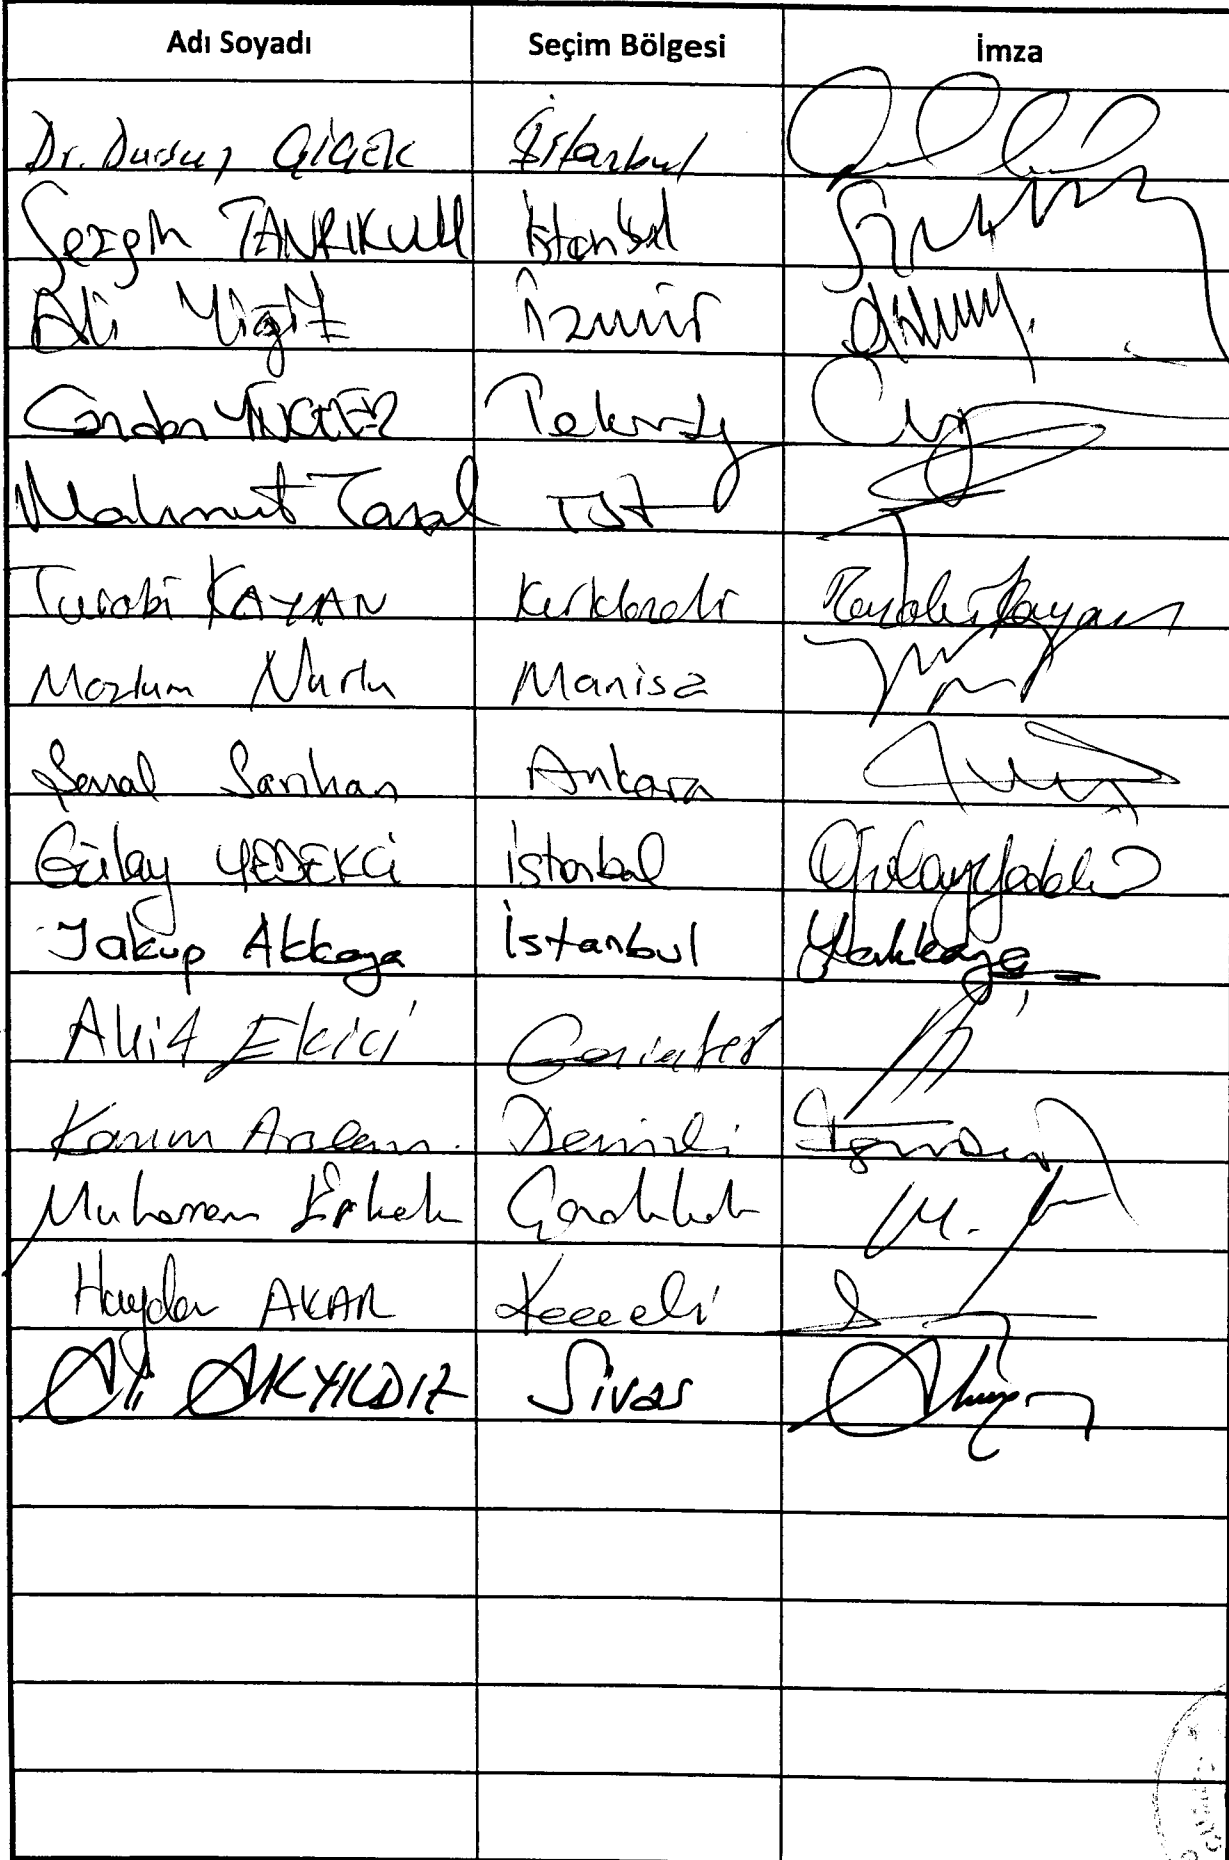 Adı Soyadı Seçim Bölgesi İmza
Dr. Dursun ÇİÇEK İstanbul
Sezgin TANRIKULU İstanbul
Ali Yiğit İzmir
Candan YÜCEER Tekirdağ
Mahmut Tanal İST
Turabi KAYAN Kırklareli Turabi Kayan
Mazlum Nurlu Manisa
Şenal Sarıhan Ankara
Gülay YEDEKCİ İstanbul
Yakup Akkaya İstanbul Yakkaya
Akif Ekici Gaziantep
Kazım Arslan Denizli
Muharrem Erkek Çanakkale
Haydar AKAR Kocaeli
Ali AKYILDIZ Sivas